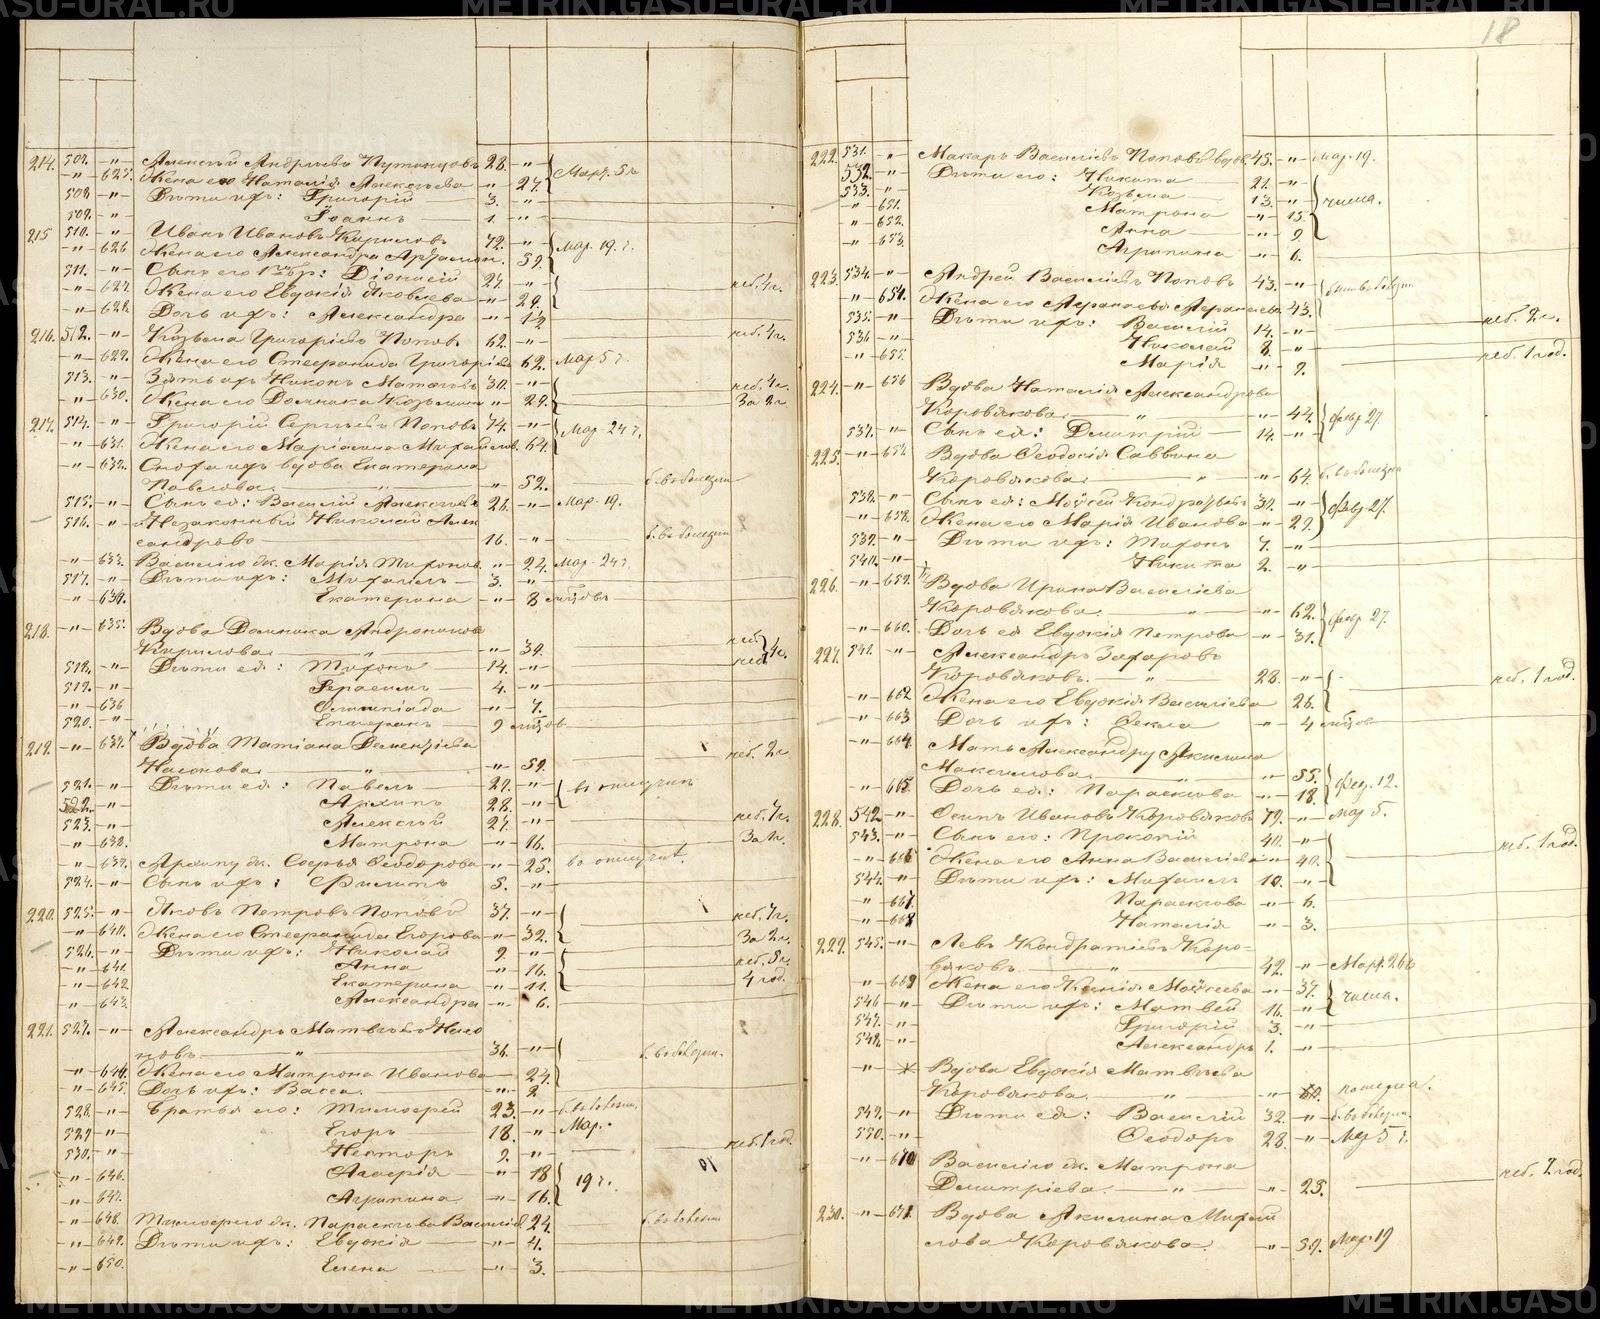 18
214. 507. -"- Алексѣй Андреевъ Путинцовъ 28. -"- Март. 5 ч.
-"- 625. Жена его Наталія Алексѣева -"- 27.
508 -"- Дѣти ихъ: Григорій 3. -"-
509. -"- Іоаннъ 1. -"-
215 510. -"- Иванъ Ивановъ Кириловъ 72. -"- Мар. 19. ч.
-"- 626 Жена его Александра 59.
511. -"- Сынъ его Діонисій 27. -"- неб. 4 г.
-"- 627. Жена его Евдокія Яковлева -"- 29.
-"- 628. Дочь ихъ: Александра -"-
216. 512. -"- Козьма Григорьевъ Поповъ 62. -"- неб. 4 г.
-"- 629. Жена его Стефанида Григорьева 62. Мар 5 ч.
513. -"- Зять их Никонъ 30. -"- неб. 4 г.
-"- 630. Жена его Домника Козьмина -"- 29. За 2 г.
217. 514. -"- Григорій Сергѣевъ Поповъ 74. -"- Мар 24 ч.
-"- 631. Жена его Маріамна Михайлова 64.
-"- 632. Сноха ихъ вдова Екатерина
Павлова -"- -"- 52. б. въ болезни
515. -"- Сынъ ея: Василій Алексѣевъ 26. -"- Мар. 19.
516. -"- Незаконный Николай Алек
сандровъ 16. -"- б. въ болезни
-"- 633. Василію ж. Марія -"- 22. Мар. 24 ч.
517. -"- Дѣти ихъ: Михаилъ 3. -"-
-"- 634. Екатерина -"- 8 мѣсяцовъ
218. -"- 635. Вдова Домника Андроникова
Кирилова -"- -"- 39. неб.
518. -"- Дѣти ея: Трифонъ 14. -"- неб. 4 г.
519. -"- Герасимъ 4. -"-
-"- 636 Олимпіада -"- 7.
520. -"- 9 мѣсяцов
219. -"- 637. Вдова Татіана Дементіева
Насонова -"- -"- 59. неб. 2 г.
521. -"- Дѣти ея: Павелъ 29. -"- въ отлучкѣ
522. -"- Архипъ 28. -"-
523. -"- Алексѣй 27. -"- неб. 7 г.
-"- 638. Матрона -"- 16. За 1 г.
-"- 639. Архипу ж. Софья Ѳеодорова -"- 25. въ отлучкѣ.
524. -"- Сынъ ихъ: Филипъ 5. -"-
220. 525. -"- Яковъ Петровъ Поповъ 37. -"- неб. 7 г.
-"- 640. Жена его Стефанида Егорова -"- 32. За 2 г.
526. -"- Дѣти ихъ: Николай 9. -"- неб. 8 г.
-"- 641. Анна -"- 16. 4 год.
-"- 642 Екатерина -"- 11.
-"- 643. Александра -"- 6.
221. 527. -"- Александръ Матвѣевъ Насо
новъ -"- 31. -"- б. въ болезни.
-"- 644. Жена его Матрона Иванова 24.
-"- 645. Дочь ихъ: Васса -"- 2
528. -"- Братья его: Тимофей 23. -"- б. въ болезни.
529 -"- Егоръ 18. -"- Мар.
530. -"- Несторъ 9. -"- неб. 1 год.
-"- 646. Агафія -"- 18
-"- 647. Агрипина -"- 16. 19 ч.
-"- 648. Тимофею ж. Параскева Василіева 24. б. въ болезни
-"- 649. Дѣти ихъ: Евдокія -"- 4.
-"- 650. Елена -"- 3.
222. 531. -"- Макаръ Василіевъ Поповъ вдов 45. -"- Мар. 19.
532. -"- Дѣти его: Никита 21. -"-
533. -"- Козьма 13. -"- числа.
-"- 651. Матрона -"- 15.
-"- 652. Анна -"- 9
-"- 653. Агрипина -"- 6.
223. 534. -"- Андрей Василіевъ Поповъ 43. -"- были въ болезни
-"- 654. Жена его 43.
535. -"- Дѣти ихъ: Василій 14. -"- неб. 2 г.
536 -"- Николай 8. -"-
-"- 655. Марія -"- 9. неб. 1 год.
224. -"- 656 Вдова Наталія Александрова
Коровякова -"- -"- 44. февр 27
537. -"- Сынъ ея: Дмитрій 14. -"-
225. -"- 657 Вдова Ѳеодосія Саввина
Коровякова -"- -"- 64. б. въ болезни
538. -"- Сынъ ея: Моѵсей Кондратьевъ 30. -"- февр 27.
-"- 658. Жена его Марія Иванова -"- 29.
539. -"- Дѣти ихъ: Трифонъ 7. -"-
540. -"- Никита 2. -"-
226. -"- 659. Вдова Ирина Василіева
Коровякова -"- -"- 62. февр 27.
-"- 660. Дочь ея Евдокія Петрова -"- 31.
227. 541. -"- Александръ Захаровъ
Коровяковъ -"- 28. -"- неб. 1 год.
-"- 662 Жена его Евдокія Василіева 26.
-"- 663 Дочь ихъ: Ѳекла -"- 4 мѣсяцов
-"- 664 Мать Александру Акилина
Максимова -"- -"- 55. Фев. 12.
-"- 665. Дочь ея: Параскева -"- 18.
228. 542. -"- Осипъ Ивановъ Коровяковъ 79. -"- Мар 5.
543. -"- Сынъ его: Прокопій 40. -"- неб. 1 год.
-"- 666 Жена его Анна Василіева -"- 40.
544. -"- Дѣти ихъ: Михаилъ 10. -"-
-"- 667. Параскева -"- 6.
-"- 668 Наталія -"- 3.
229. 545. -"- Левъ Кондратіевъ Коро-
вяковъ -"- 42. -"- Март. 26
-"- 669 Жена его Ксенія Моѵсеева -"- 37. числа.
546 -"- Дѣти ихъ: Матвей 16. -"-
547. -"- Григорій 3. -"-
548. -"- Александръ 1. -"-
-"- Вдова Евдокія Матвѣева
Коровякова -"- -"- 60.
549. -"- Дѣти ея: Василій 32. -"- б. въ болезни
550. -"- Ѳеодоръ 28. -"- Мар 5 ч.
-"- 670 Василію ж. Матрона
Дмитріева -"- -"- 23. неб. 2 год.
230. -"- 671. Вдова Акилина Михай
лова Коровякова -"- 59. Мар. 19
METRIKI.GASO-URAL.RU